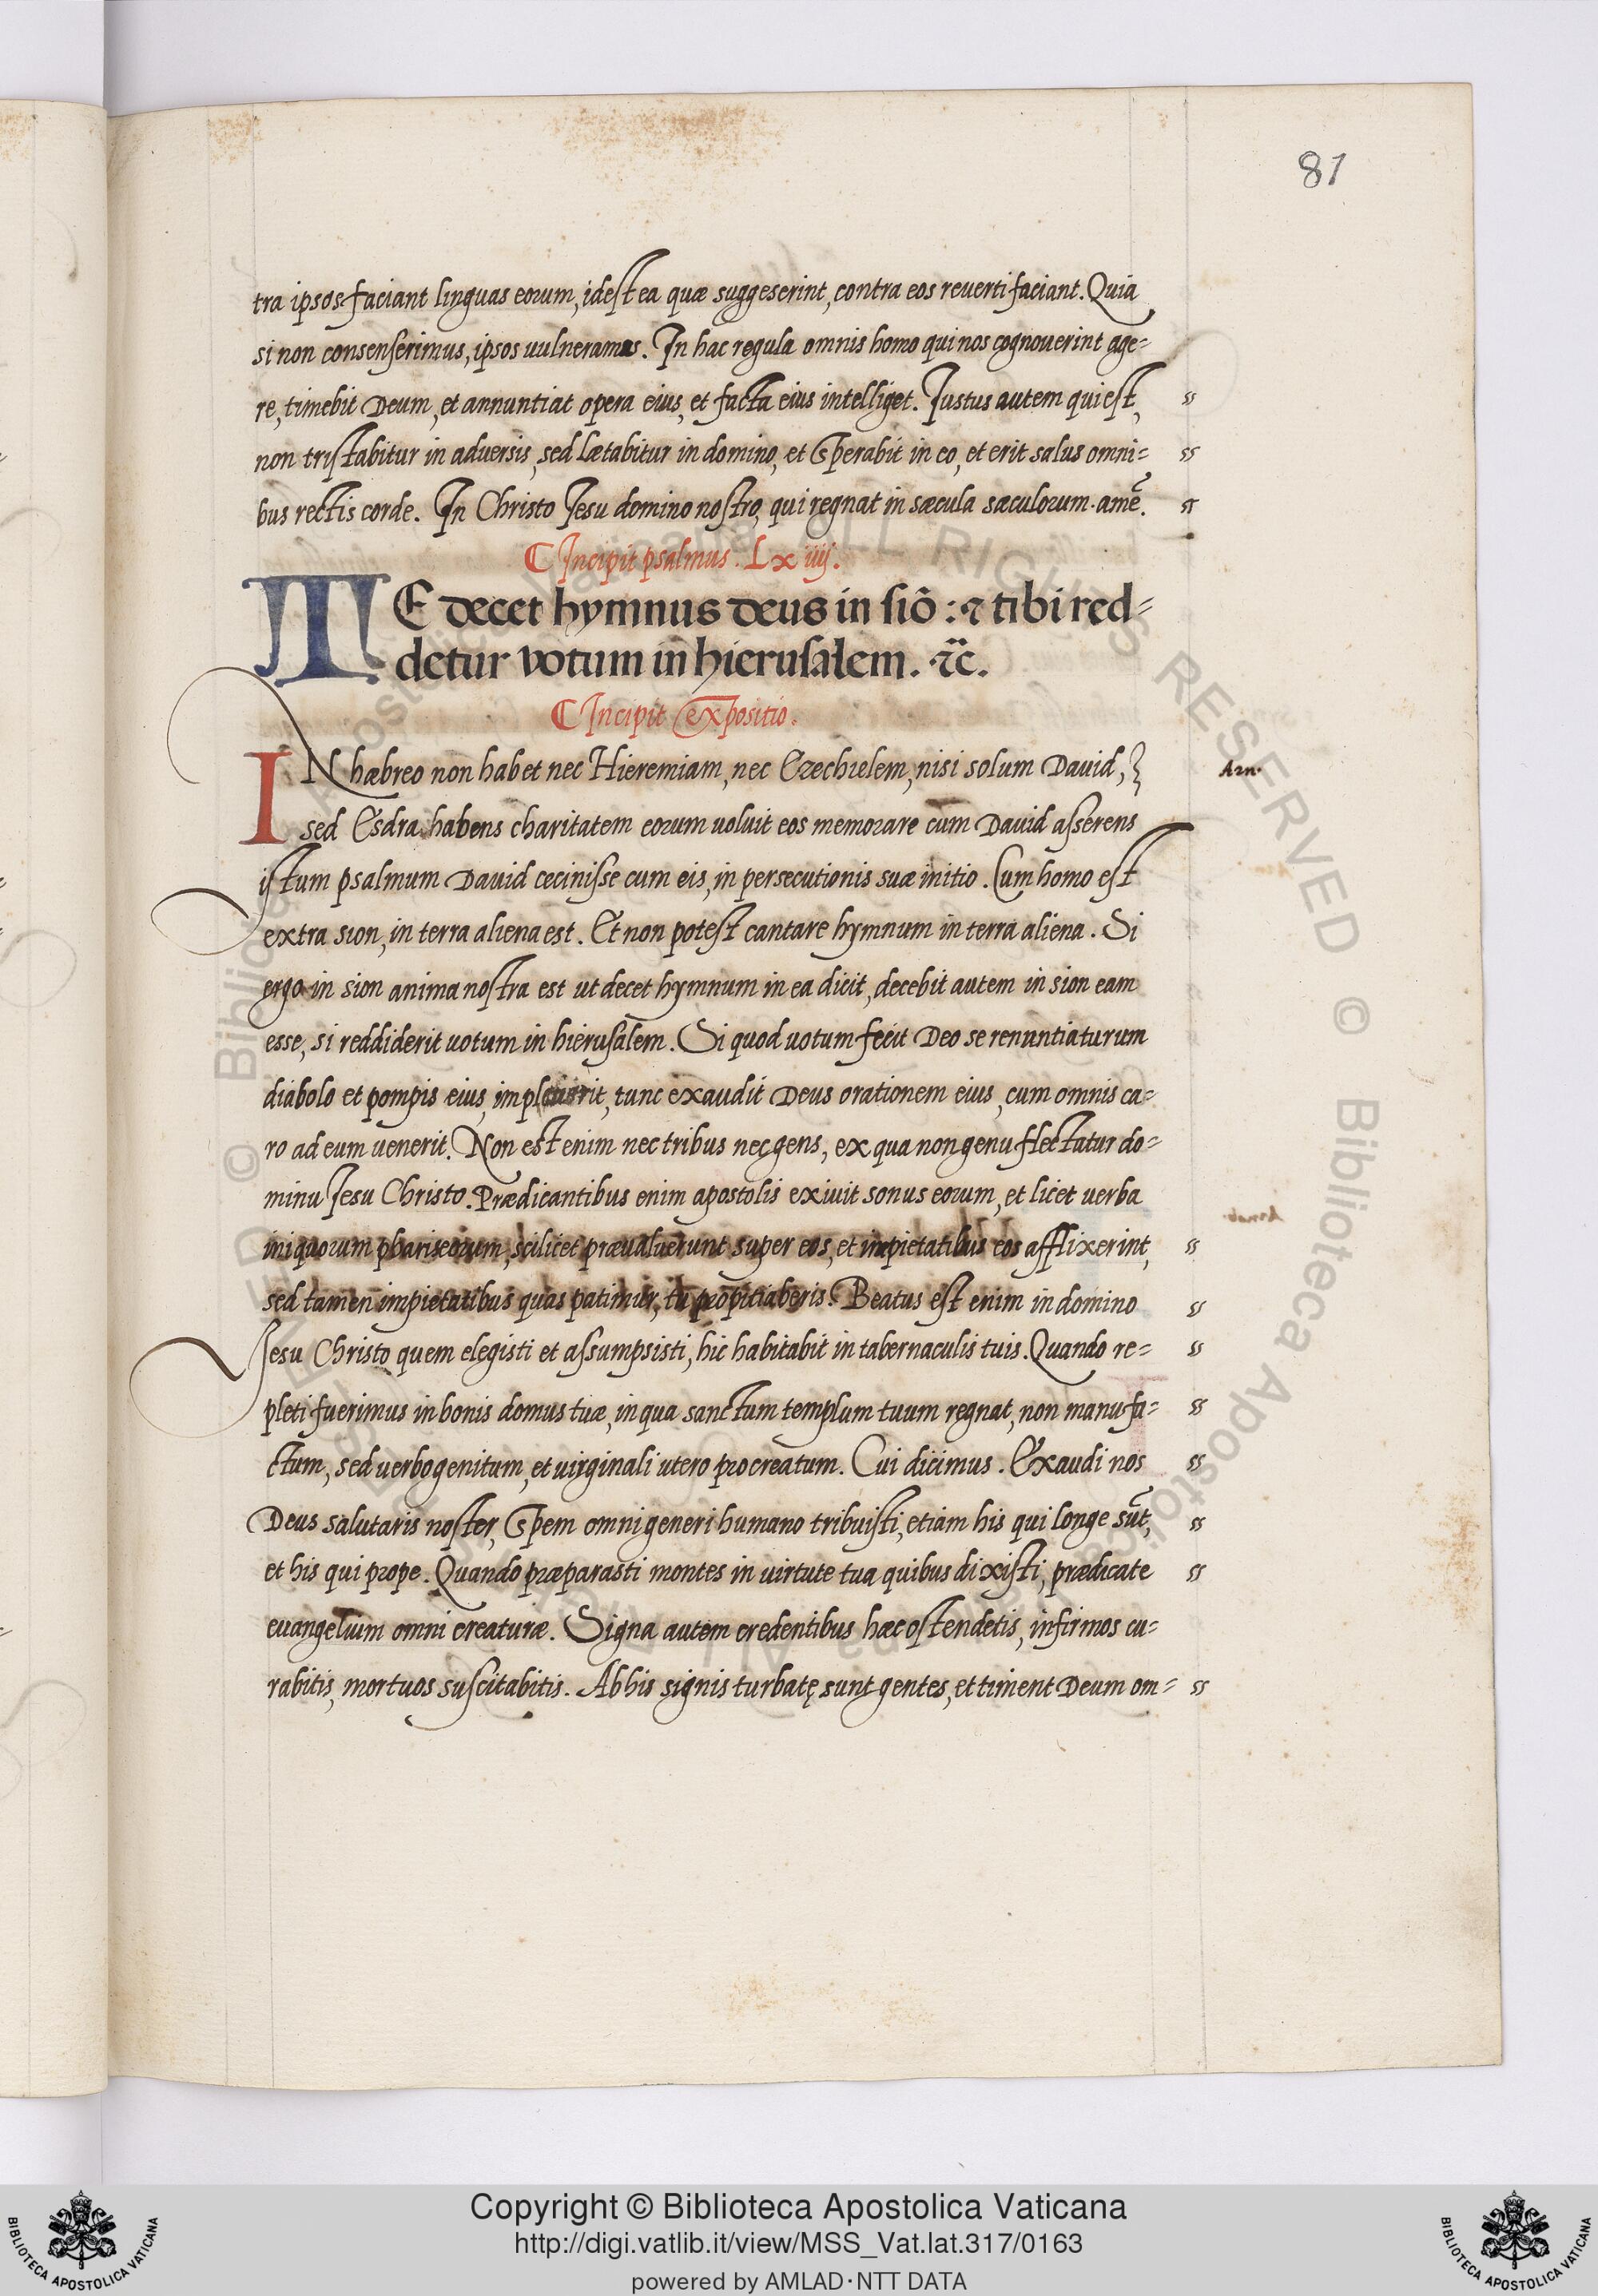 81
tra ipsos faciant linguas eorum, idest ea quæ suggeserint, contra eos reverti faciant. Quia
si non consenserimus, ipsos vulneramus. In hac regula omnis homo qui nos cognoverint age-
re, timebit Deum, et annuntiat opera eius, et facta eius intelliget. Iustus autem qui est,
non tristabitur in adversis, sed lætabitur in domino, et sperabit in eo, et erit salus omni-
bus rectis corde. In Christo Iesu domino nostro, qui regnat in sæcula sæculorum. amē.
Incipit psalmus. Lxiiij.
TE decet hymnus deus in siō: ⁊ tibi red-
detur votum in hierusalem. ⁊c.
Incipit expositio.
IN hæbreo non habet nec Hieremiam, nec Ezechielem, nisi solum David,
Arn.
sed Esdra habens charitatem eorum voluit eos memorare cum David asserens
istum psalmum David cecinisse cum eis, in persecutionis suæ initio. Cum homo est
extra sion, in terra aliena est. Et non potest cantare hymnum in terra aliena. Si
ergo in sion anima nostra est ut decet hymnum in ea dicit, decebit autem in sion eam
esse, si reddiderit votum in hierusalem. Si quod votum fecit Deo se renuntiaturum
diabolo et pompis eius, tunc exaudit Deus orationem eius, cum omnis ca-
ro ad eum venerit. Non est enim nec tribus nec gens, ex qua non genu flectatur do-
minu Iesu Christo. Prædicantibus enim apostolis exivit sonus eorum, et licet verba
iniquorum phariseorum, scilicet prævaluerunt super eos, et impietatibus eos afflixerint,
sed tamen impietatibus quas patimur, tu propitiaberis. Beatus est enim in domino
Iesu Christo quem elegisti et assumpsisti, hic habitabit in tabernaculis tuis. Quando re-
pleti fuerimus in bonis domus tuæ, in qua sanctum templum tuum regnat, non manufa-
ctum, sed verbogenitum, et virginali utero procreatum. Cui dicimus. Exaudi nos
Deus salutaris noster, Spem omni generi humano tribuisti, etiam his qui longe sūt,
et his qui prope. Quando præparasti montes in virtute tua quibus dixisti, prædicate
euangelium omni creaturæ. Signa autem credentibus hæc ostendetis, infirmos cu-
rabitis, mortuos suscitabitis. Ab his signis turbatę sunt gentes, et timent Deum om-
Copyright © Biblioteca Apostolica Vaticana
http://digi.vatlib.it/view/MSS_Vat.lat.317/0163
powered by AMLAD·NTT DATA
BIBLIOTECA APOSTOLICA VATICANA
BIBLIOTECA APOSTOLICA VATICANA